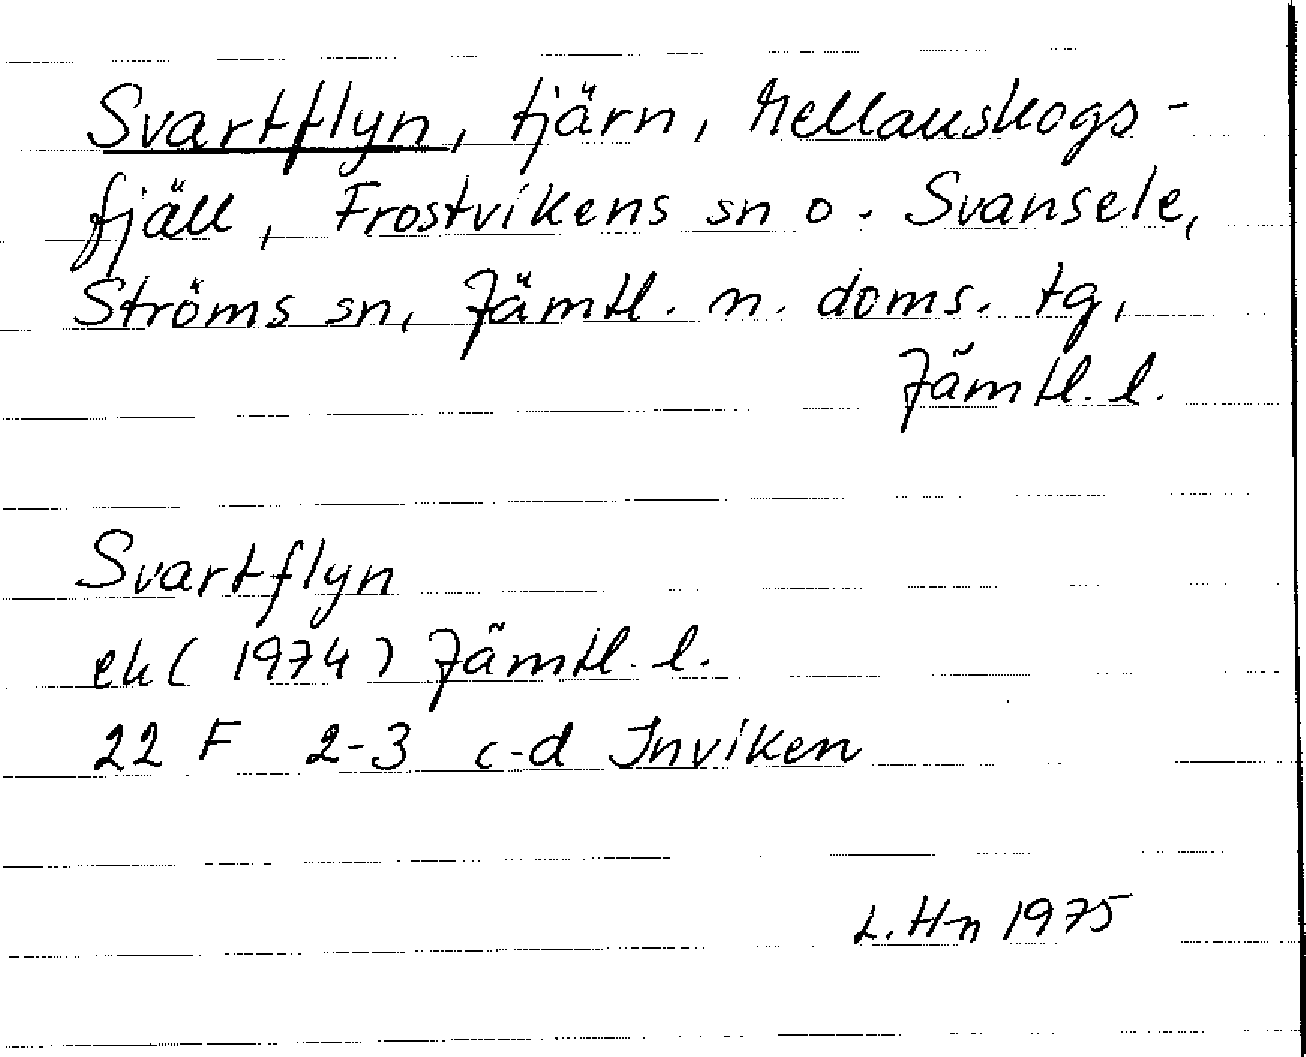 Svartflyn, tjärn, Mellanskogs-
fjäll, Frostvikens sn o. Svansele,
Ströms sn, Jämtl. n. doms. tg,
Jämtl. l.
Svartflyn
ek (1974) Jämtl. l.
22 F 2-3 c-d Inviken
L. Hn 1975